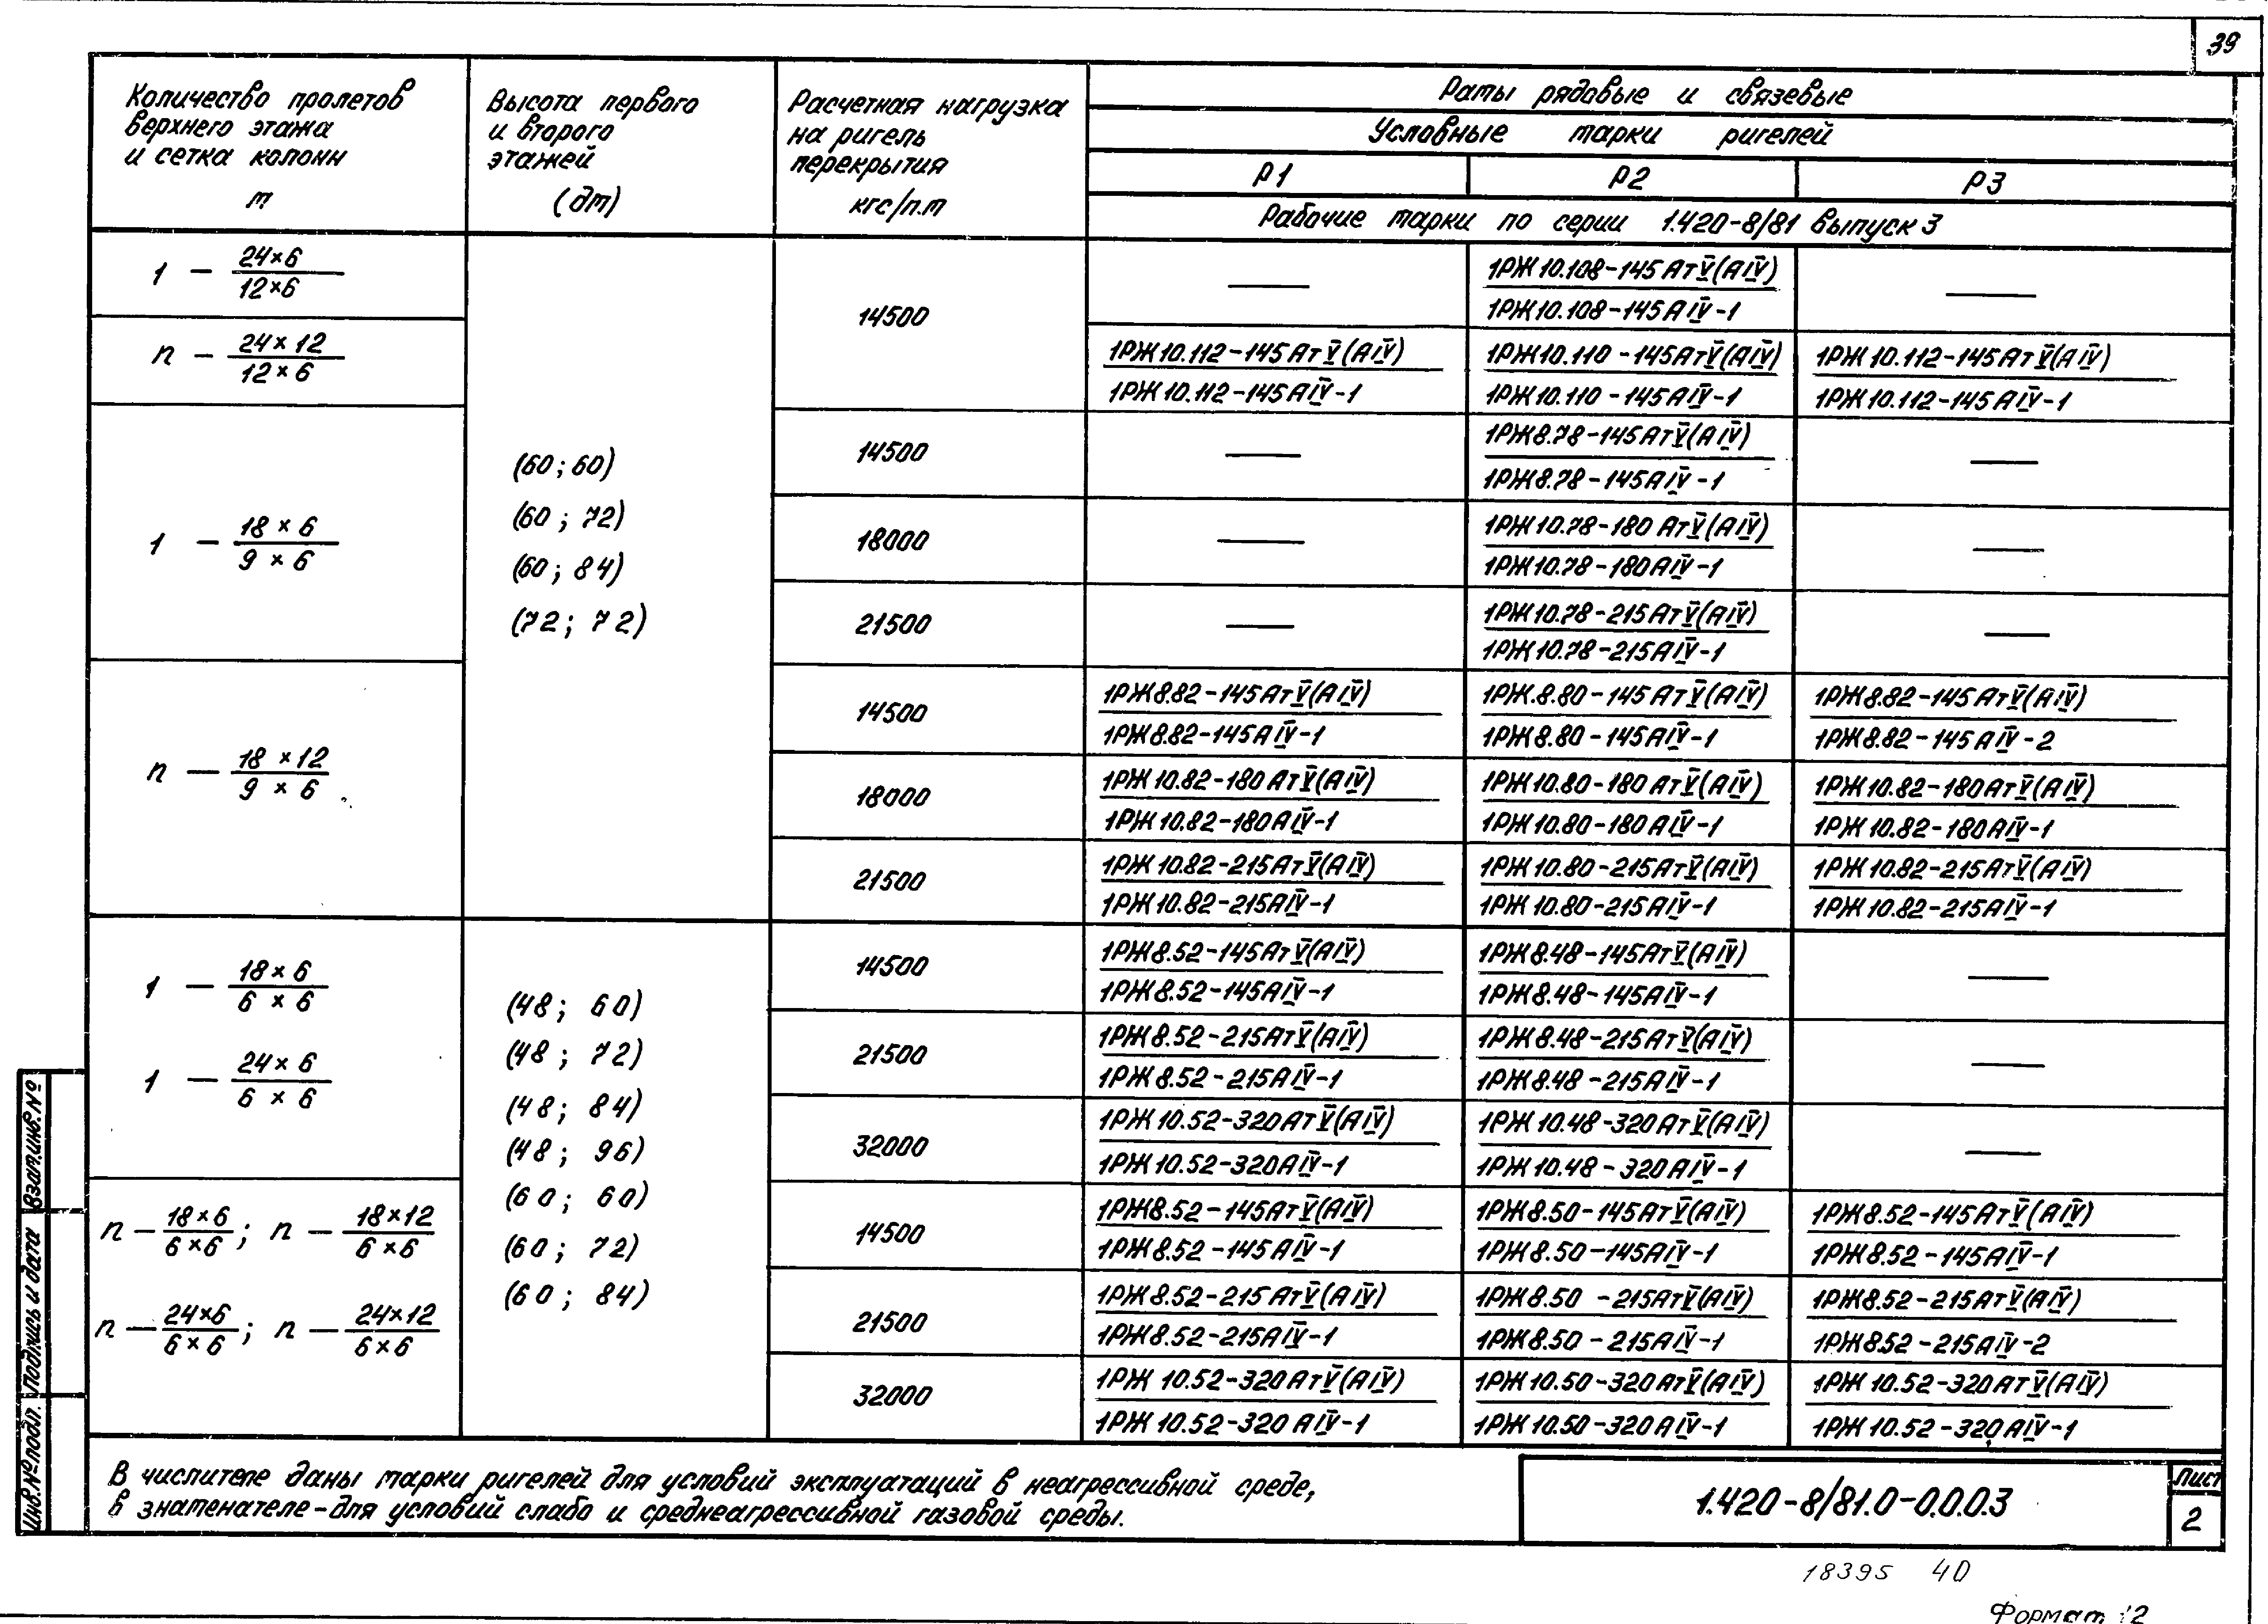 39
Количество пролетов
верхнего этажа
и сетка колонн
м
Высота первого
и второго
этажей
(дм)
Расчетная нагрузка
на ригель
перекрытия
кгс/п.м
Рамы рядовые и связевые
Условные марки ригелей
Р1 Р2 Р3
Рабочие марки по серии 1.420-8/81 выпуск 3
1 – 24×6
12×6
14500
—
1РЖ10.108-145АтV(АIV)
1РЖ10.108-145АIV-1
—
п – 24×12
12×6
1РЖ10.112-145АтV(АIV)
1РЖ10.112-145АIV-1
1РЖ10.110-145АтV(АIV)
1РЖ10.110-145АIV-1
1РЖ10.112-145АтV(АIV)
1РЖ10.112-145АIV-1
1 – 18×6
9×6
(60; 60)
(60; 72)
(60; 84)
(72; 72)
14500
—
1РЖ8.78-145АтV(АIV)
1РЖ8.78-145АIV-1
—
18000
—
1РЖ10.78-180АтV(АIV)
1РЖ10.78-180АIV-1
—
21500
—
1РЖ10.78-215АтV(АIV)
1РЖ10.78-215АIV-1
—
п – 18×12
9×6
14500
1РЖ8.82-145АтV(АIV)
1РЖ8.82-145АIV-1
1РЖ.8.80-145АтV(АIV)
1РЖ8.80-145АIV-1
1РЖ8.82-145АтV(АIV)
1РЖ8.82-145АIV-2
18000
1РЖ10.82-180АтV(АIV)
1РЖ10.82-180АIV-1
1РЖ10.80-180АтV(АIV)
1РЖ10.80-180АIV-1
1РЖ10.82-180АтV(АIV)
1РЖ10.82-180АIV-1
21500
1РЖ10.82-215АтV(АIV)
1РЖ10.82-215АIV-1
1РЖ10.80-215АтV(АIV)
1РЖ10.80-215АIV-1
1РЖ10.82-215АтV(АIV)
1РЖ10.82-215АIV-1
1 – 18×6
6×6
1 – 24×6
6×6
(48; 60)
(48; 72)
(48; 84)
(48; 96)
(60; 60)
(60; 72)
(60; 84)
14500
1РЖ8.52-145АтV(АIV)
1РЖ8.52-145АIV-1
1РЖ8.48-145АтV(АIV)
1РЖ8.48-145АIV-1
—
21500
1РЖ8.52-215АтV(АIV)
1РЖ8.52-215АIV-1
1РЖ8.48-215АтV(АIV)
1РЖ8.48-215АIV-1
—
32000
1РЖ10.52-320АтV(АIV)
1РЖ10.52-320АIV-1
1РЖ10.48-320АтV(АIV)
1РЖ10.48-320АIV-1
—
п – 18×6 ; п – 18×12
6×6 6×6
п – 24×6 ; п – 24×12
6×6 6×6
14500
1РЖ8.52-145АтV(АIV)
1РЖ8.52-145АIV-1
1РЖ8.50-145АтV(АIV)
1РЖ8.50-145АIV-1
1РЖ8.52-145АтV(АIV)
1РЖ8.52-145АIV-1
21500
1РЖ8.52-215АтV(АIV)
1РЖ8.52-215АIV-1
1РЖ8.50-215АтV(АIV)
1РЖ8.50-215АIV-1
1РЖ8.52-215АтV(АIV)
1РЖ8.52-215АIV-2
32000
1РЖ10.52-320АтV(АIV)
1РЖ10.52-320АIV-1
1РЖ10.50-320АтV(АIV)
1РЖ10.50-320АIV-1
1РЖ10.52-320АтV(АIV)
1РЖ10.52-320АIV-1
В числителе даны марки ригелей для условий эксплуатаций в неагрессивной среде,
в знаменателе-для условий слабо и среднеагрессивной газовой среды.
1.420-8/81.0-0.0.0.3
Лист
2
Инв.№подл. Подпись и дата Взам.инв.№
18395 40
Формат 12